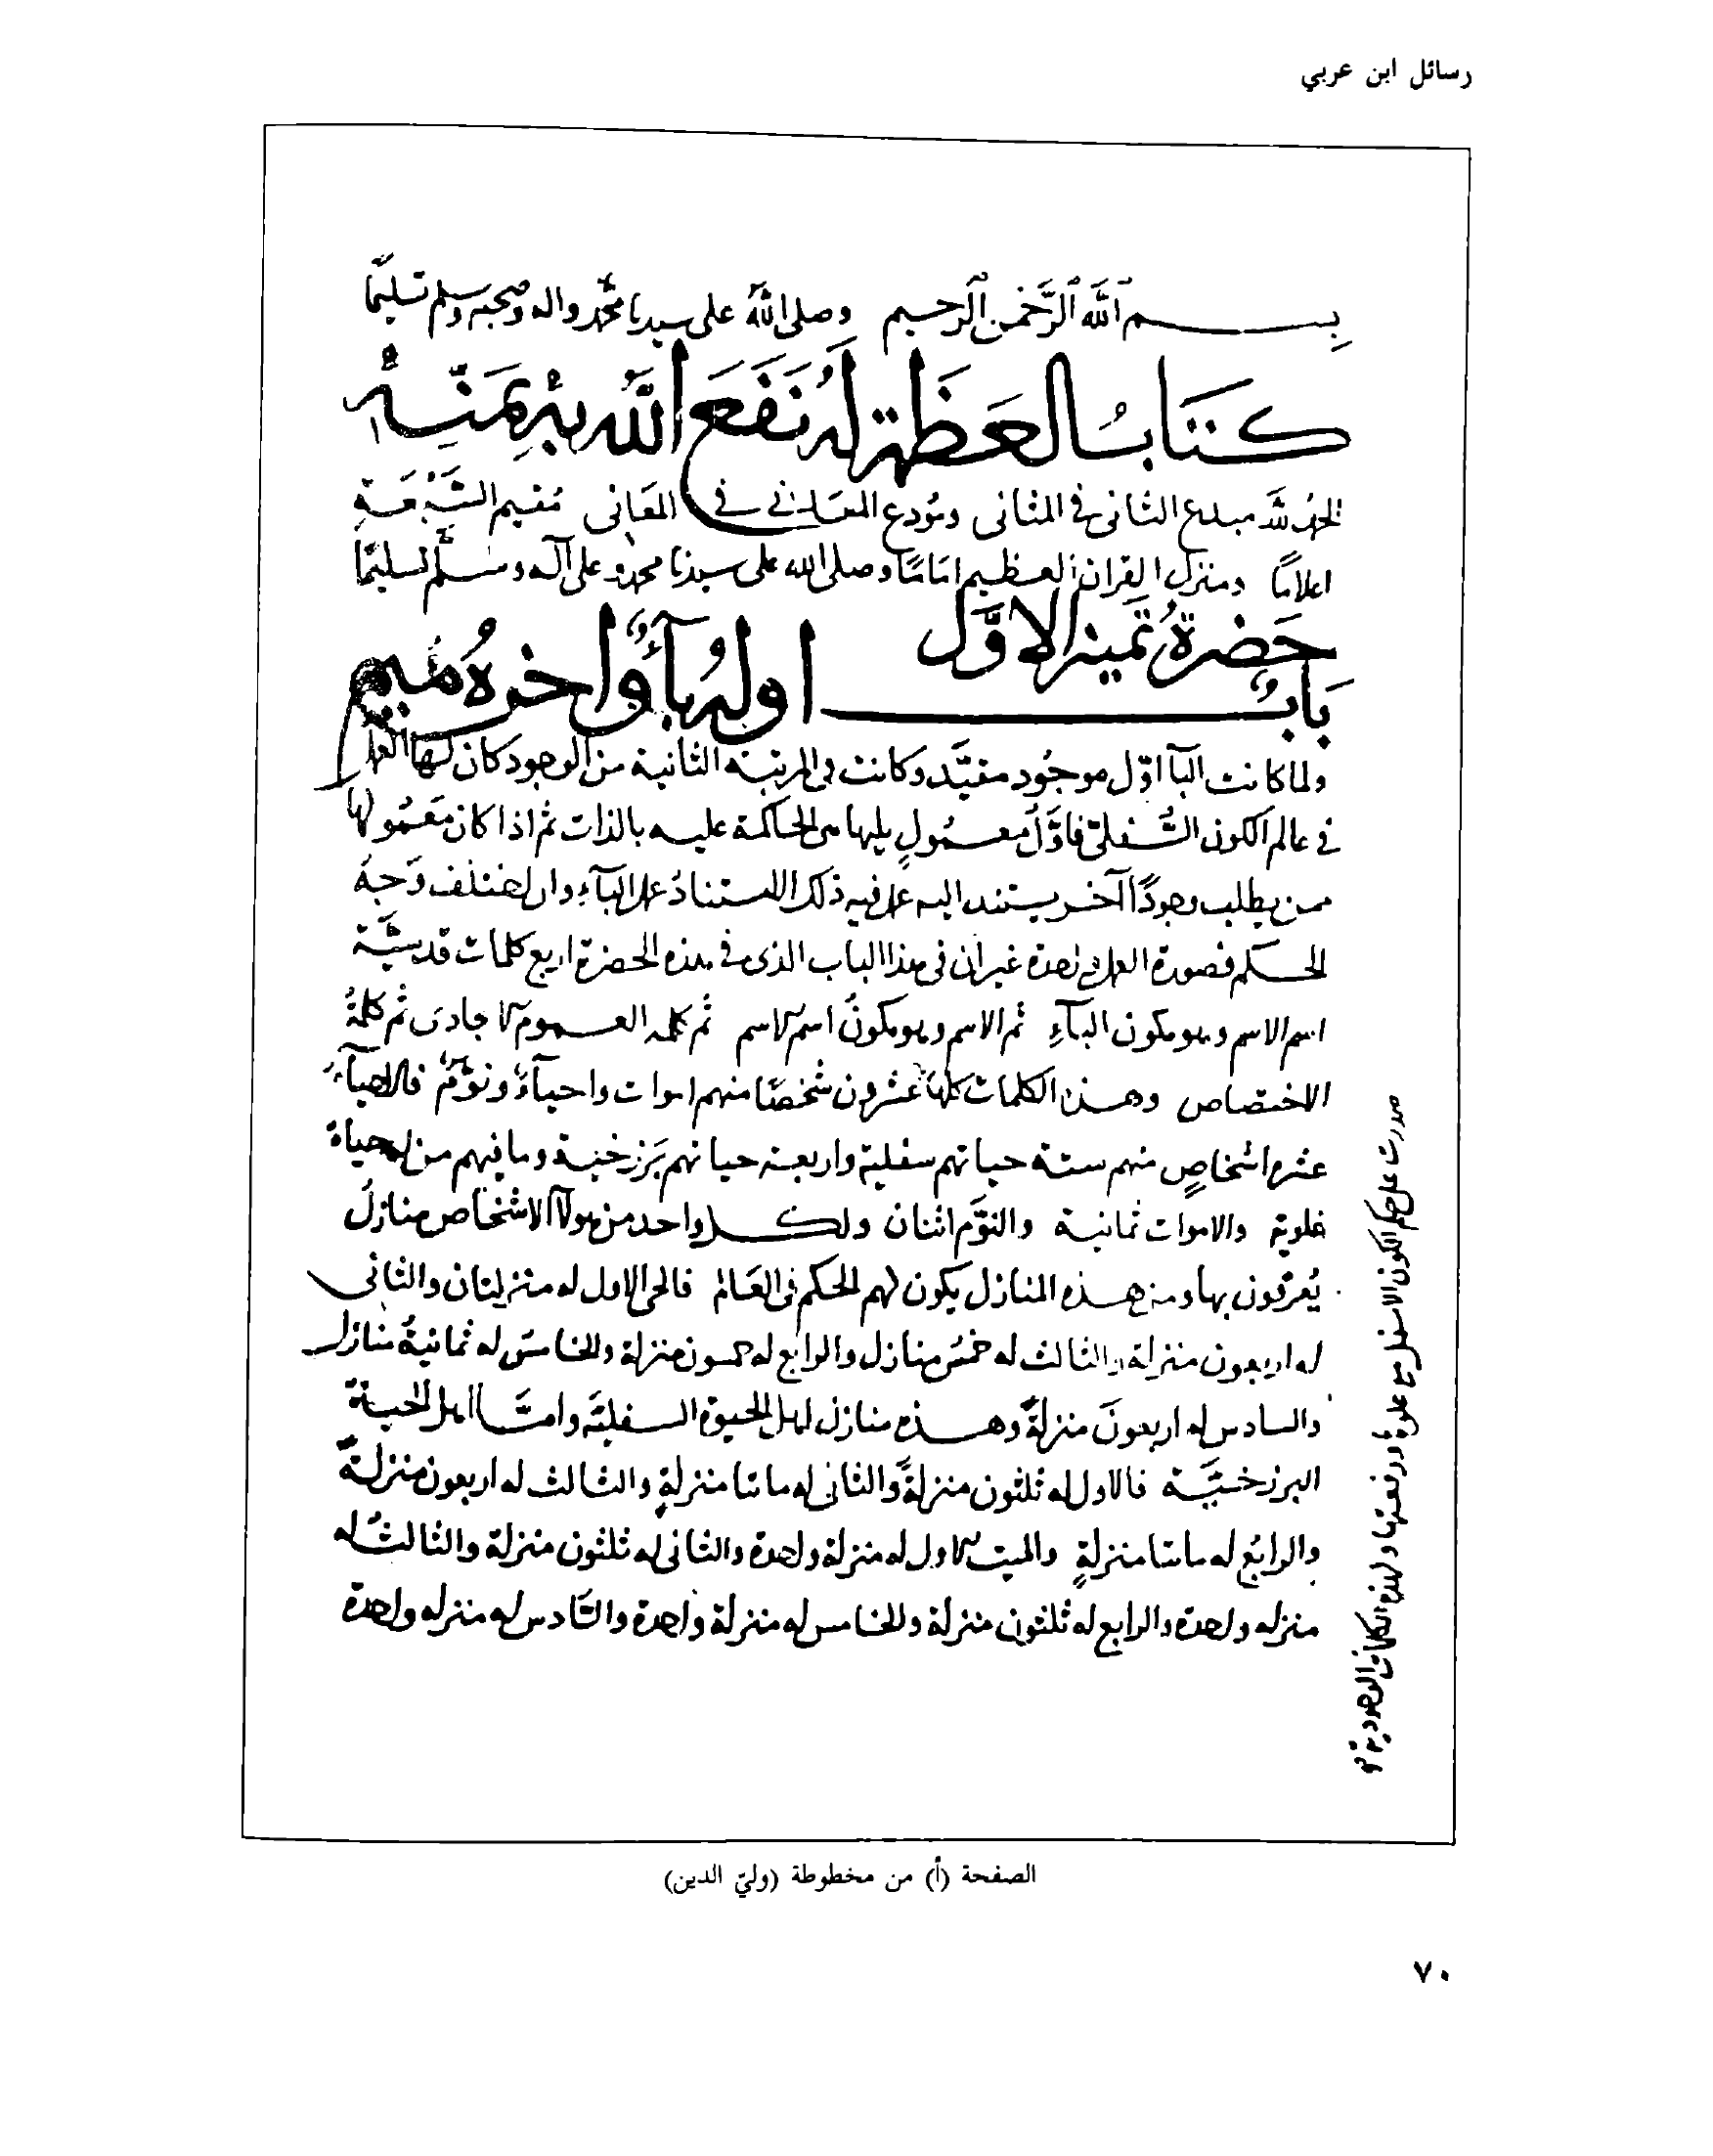 رسائل ابن عربي
بسم الله الرحمن الرحيم وصلى الله على سيدنا محمد واله وصحبه وسلم تسليما
كتاب العظمة له نفع الله به بمنه
الحمد لله مبدع الثانى فى المثانى ومودع المعانى فى المعانى مقيم السبعة
اعلامًا ومنزل القران العظيم امامًا وصلى الله على سيدنا محمد وعلى آله وسلم تسليمًا
حضرة تميز الاول
باب اوله باء واخره ميم
ولما كانت البآ اوّل موجود مقيّد وكانت فى المرتبة الثانية من الوجود كان لها العمل
فى عالم الكون السّفلىّ فاوّل معمولٍ يليها هى الحاكمة عليه بالذات ثم اذا كان معمولها
ممن يطلب وجودًا آخر يستند اليه عمل فيه ذلك الاستناد عمل البآء وان اختلف وجه
الحكم فصورة العمل واحدة غير ان فى هذا الباب الذى فى هذه الحضرة اربع كلمات قدسيّة
اسم الاسم وهو مكون البآءِ ثم الاسم وهو مكون اسم الاسم ثم كلمه العموم الاجادى ثم كلمة
الاختصاص وهذه الكلمات كلها عشرون شخصًا منهم اموات واحيآء ونوّم فالاحيآء
عشرة اشخاصٍ منهم ستة حياتهم سفلية واربعة حياتهم برزخية وما فيهم من له حياة
علوية والاموات ثمانية والنوّم اثنان ولكل واحد من هولآ الاشخاص منازل
يُعرفون بها ومن هذه المنازل يكون لهم الحكم فى العالم فالحى الاول له منزلتان والثانى
له اربعون منزلة والثالث له خمس منازل والرابع له خمسون منزلة والخامس له ثمانية منازل
والسادس له اربعون منزلةً وهذه منازل اهل الحيوة السفليّة وامّا اهل الحياة
البرزخيّة فالاول له ثلثون منزلةً والثانى له ماتا منزلةٍ والثالث له اربعون منزلةً
والرابع له ماتا منزلةٍ والميت الاول له منزلة واحدة والثانى له ثلثون منزلة والثالث له
منزله واحدة والرابع له ثلثون منزلة والخامس له منزلة واحدة والسّادس له منزله واحدة
صدرت على حكم الكون الاسفل مع علوه ورفعتها ولهذه الكلمات الوجودية
الصفحة (أ) من مخطوطة (وليّ الدين)
٧٠